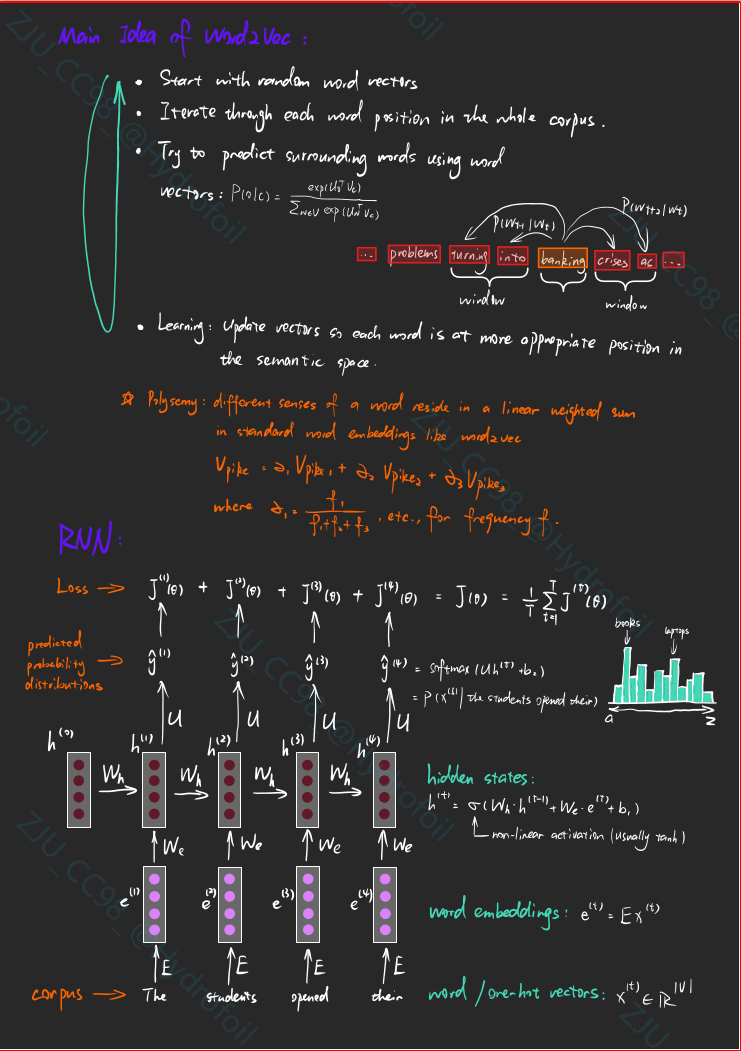 Main Idea of Word2Vec :
• Start with random word vectors
• Iterate through each word position in the whole corpus.
• Try to predict surrounding words using word
vectors: P(o|c) = exp(u_o^T v_c) / Σ_{w∈V} exp(u_w^T v_c)
P(w_{t-1}|w_t) P(w_{t+2}|w_t)
... problems turning into banking crises as ...
window window
• Learning: Update vectors so each word is at more appropriate position in
the semantic space.
☆ Polysemy: different senses of a word reside in a linear weighted sum
in standard word embeddings like word2vec
V_pike = a_1 V_pike_1 + a_2 V_pike_2 + a_3 V_pike_3
where a_1 = f_1 / (f_1+f_2+f_3), etc., for frequency f.
RNN:
Loss → J^(1)(θ) + J^(2)(θ) + J^(3)(θ) + J^(4)(θ) = J(θ) = 1/T Σ_{t=1}^T J^(t)(θ)
books laptops
predicted
probability → ŷ^(1) ŷ^(2) ŷ^(3) ŷ^(4) = softmax(Uh^(t)+b_2)
distributions
= P(x^(5)| The students opened their)
a z
U U U U
h^(0) h^(1) h^(2) h^(3) h^(4)
W_h W_h W_h W_h
hidden states:
h^(t) = σ(W_h·h^(t-1)+W_e·e^(t)+b_1)
non-linear activation (usually tanh)
W_e W_e W_e W_e
e^(1) e^(2) e^(3) e^(4)
word embeddings: e^(t) = Ex^(t)
E E E E
corpus → The students opened their
word / one-hot vectors: x^(t) ∈ ℝ^|V|
ZJU_CC98_@Hydrofoil